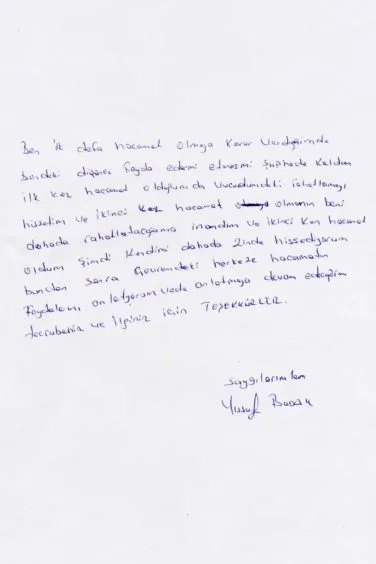 Ben ilk defa hacamat olmaya karar verdiğimde
fayda edermi etmezmi şüphede kaldım
ilk kez hacamat olduğumda vucudumdaki rahatlamayı
hissettim ve ikinci kez hacamat olmanın beni
dahada rahatlatacağına inandım ve ikinci kez hacamat
oldum şimdi kendimi dahada zinde hissediyorum
bundan sonra çevremdeki herkeze hacamatın
faydalarını anlatıyorum vede anlatmaya devam edeceğim
tecrübeniz ve ilginiz için TEŞEKKÜRLER.
saygılarımla
Yusuf